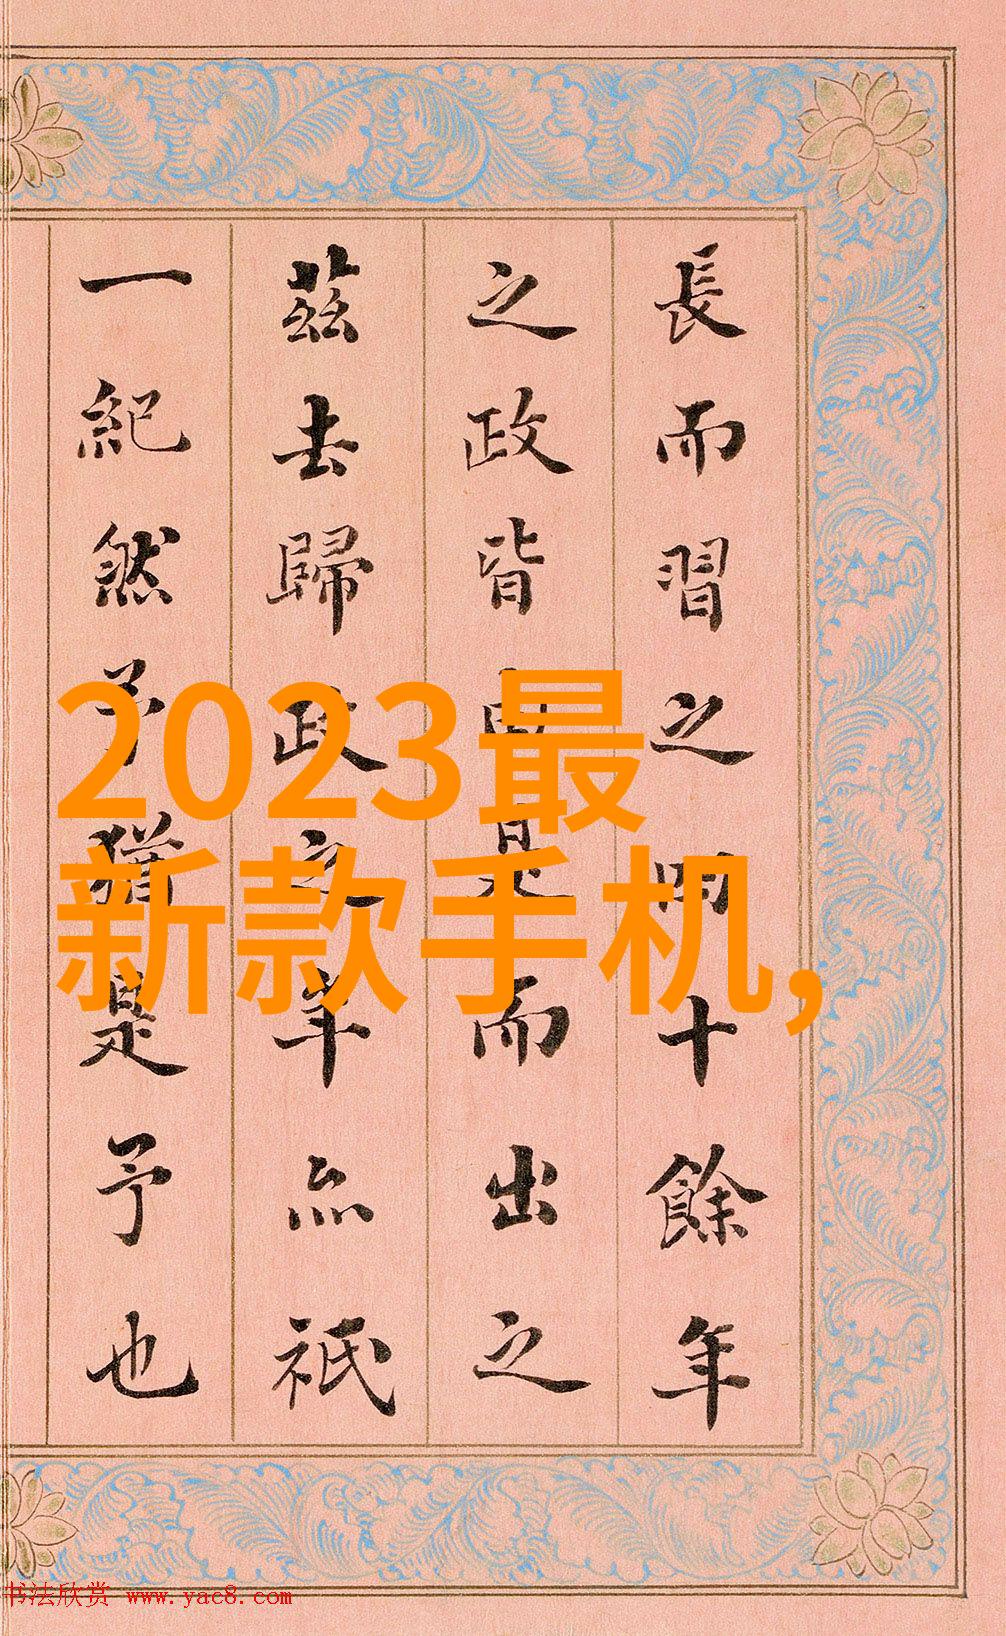 長而習之四十餘年
之政皆由是而出之
茲去歸政之年亦祇
一紀然予猶是予也
2023最
新款手机,
书法欣赏 www.yac8.com